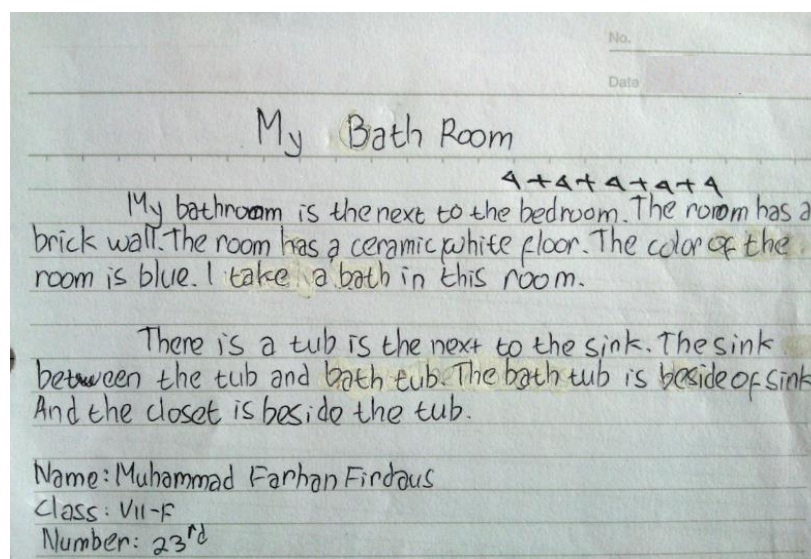 No.
Date
My Bath Room
4+4+4+4+4
My bathroom is the next to the bedroom. The room has a
brick wall. The room has a ceramic white floor. The color of the
room is blue. I take a bath in this room.
There is a tub is the next to the sink. The sink
between the tub and bath tub. The bath tub is beside of sink
And the closet is beside the tub.
Name: Muhammad Farhan Firdaus
Class: VII-F
Number: 23rd